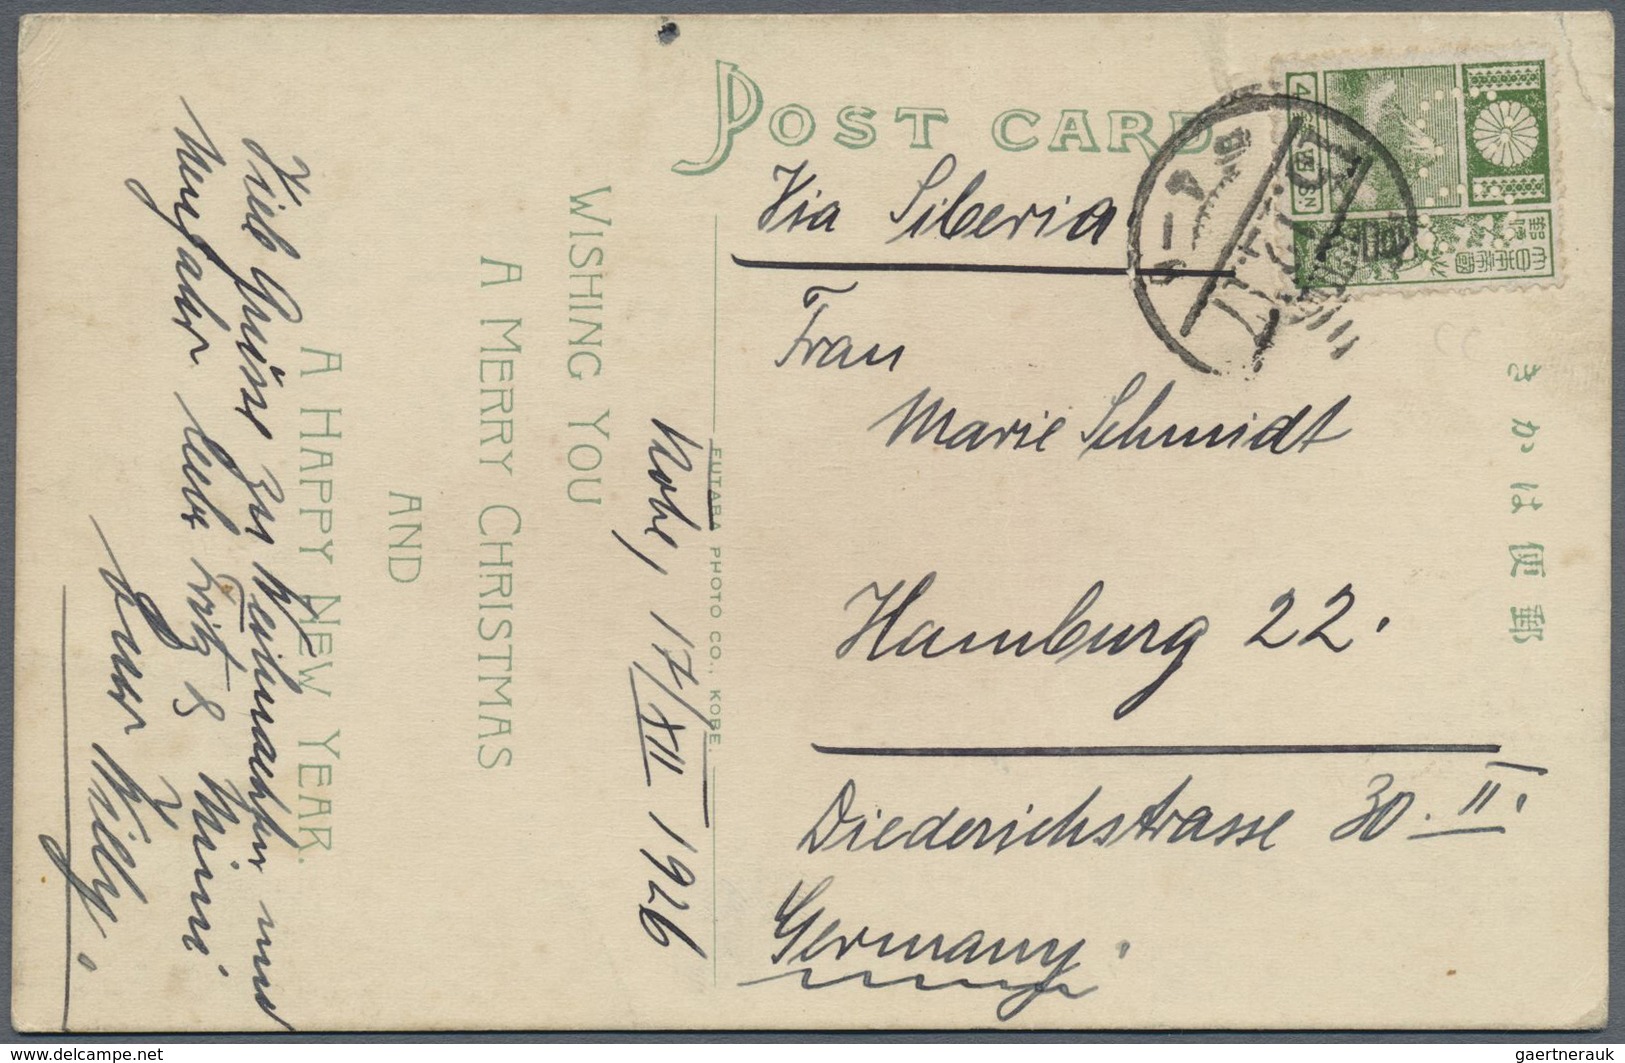 POST CARD
Via Siberia.
Frau
Marie Schmidt
Hamburg 22.
Diederichstrasse 30. II.
Germany.
郵便はかき
大日本帝國郵
FUTABA PHOTO CO., KOBE
Kobe, 17/XII 1926
WISHING YOU
A MERRY CHRISTMAS
AND
A HAPPY NEW YEAR.
Viele Grüsse zur Weihnachten und
Neujahr Fritz & Mimi
Euer Willy.
gaertnerauk